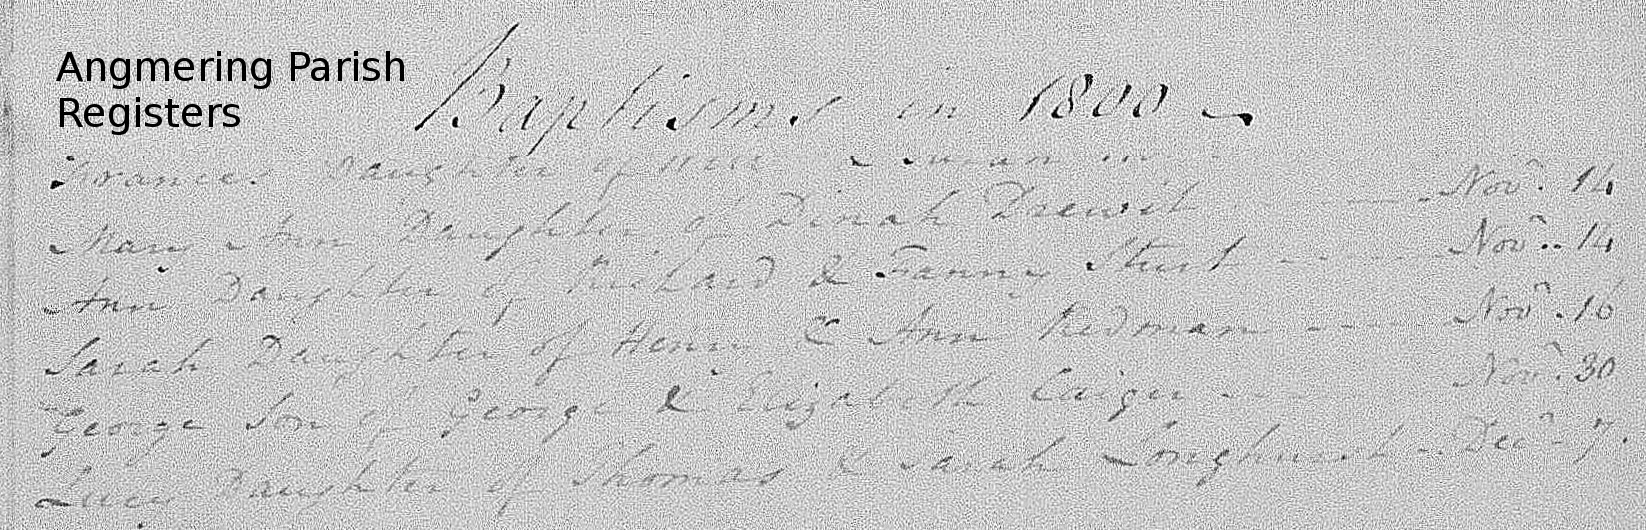 Angmering Parish
Registers
Baptisms in 1800
Frances Daughter of
Mary Ann Daughter of Dinah Drewit Novr. 14
Ann Daughter of Richard & Fanny Sturt Novr. 14
Sarah Daughter of Henry & Ann Redman Novr. 16
George Son of George & Elizabeth Caiger Novr. 30
Lucy Daughter of Thomas & Sarah Longhurst Decr. 7.